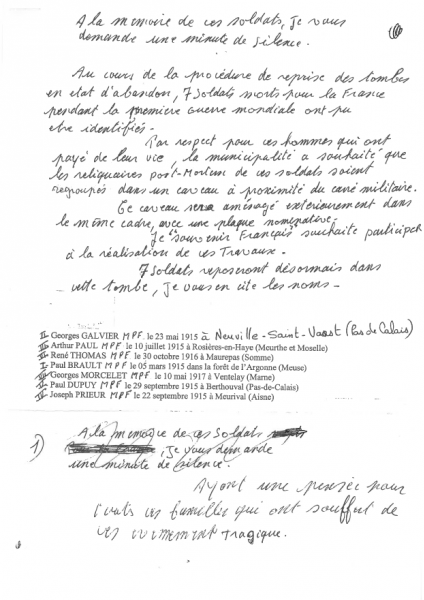 A la memoire de ces soldats, Je vous
demande une minute de silence.
Au cours de la procédure de reprise des tombes
en etat d'abandon, 7 Soldats morts pour la France
pendant la première Guerre mondiale ont pu
etre identifiés.
Par respect pour ces hommes qui ont
payé de leur vie, la municipalité a souhaité que
les reliquaires post-Mortem de ces soldats soient
regroupés dans un caveau à proximité du carré militaire.
Ce caveau sera aménagé exterieurement dans
le même cadre, avec une plaque nominative.
Le "Souvenir Français" souhaite participer
à la réalisation de ces Travaux.
7 Soldats reposeront désormais dans
cette tombe, Je vous en cite les noms -
II Georges GALVIER MPF. le 23 mai 1915 à Neuville-Saint-Vaast (Pas de Calais)
Arthur PAUL MPF. le 10 juillet 1915 à Rosières-en-Haye (Meurthe et Moselle)
II René THOMAS MPF. le 30 octobre 1916 à Maurepas (Somme)
I Paul BRAULT MPF. le 05 mars 1915 dans la forêt de l'Argonne (Meuse)
Georges MORCELET MPF. le 10 mai 1917 à Ventelay (Marne)
Paul DUPUY MPF. le 29 septembre 1915 à Berthouval (Pas-de-Calais)
Joseph PRIEUR MPF. le 22 septembre 1915 à Meurival (Aisne)
1) A la memoire de ces Soldats
, Je vous demande
une minute de silence.
Ayont une pensée pour
toutes ces familles qui ont souffert de
ces evenement tragique.